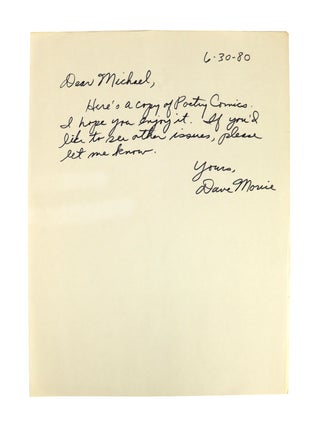 6-30-80
Dear Michael,
Here's a copy of Poetry Comics.
I hope you enjoy it. If you'd
like to see other issues, please
let me know.
Yours,
Dave Morice